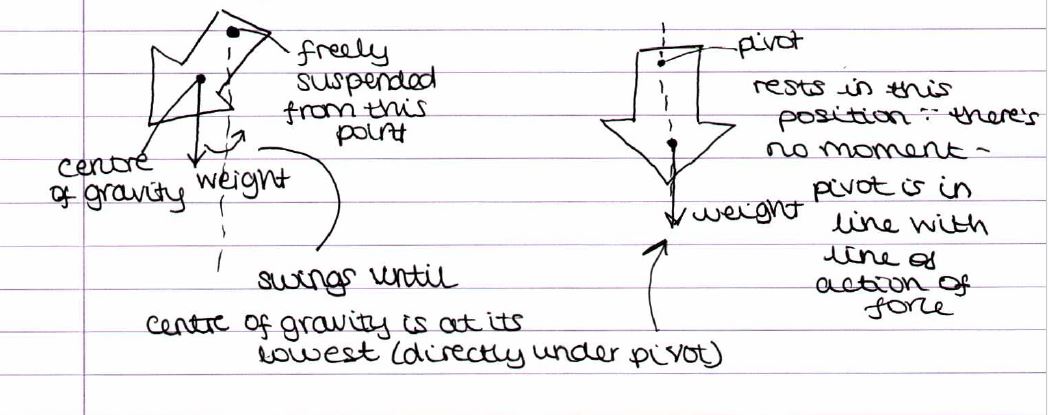 freely
suspended
from this
point
centre
of gravity
weight
swings until
centre of gravity is at its
lowest (directly under pivot)
pivot
rests in this
position ∵ there's
no moment -
pivot is in
line with
line of
action of
force
weight